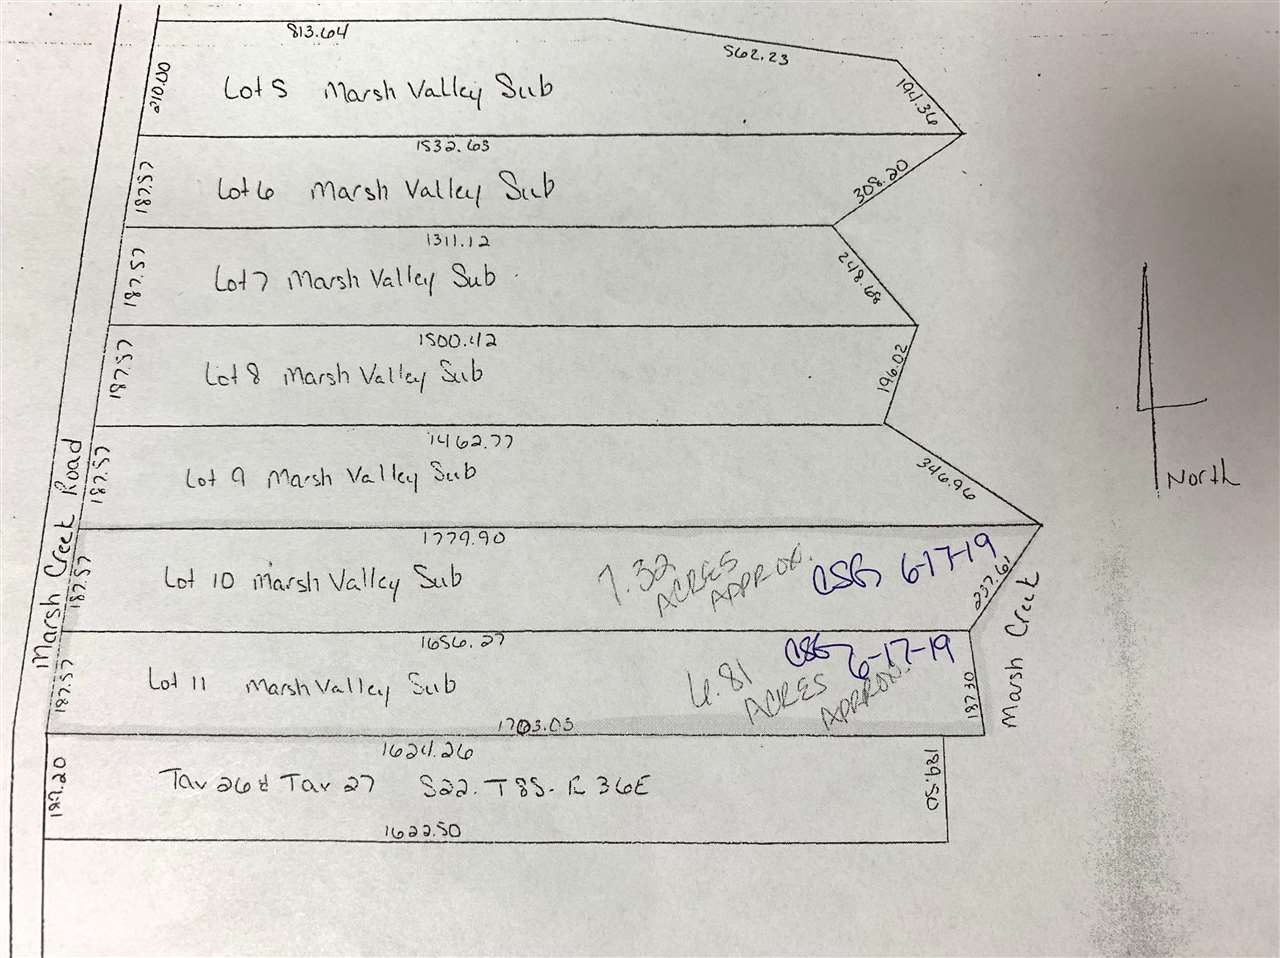 813.64
562.23
210.00
Lot 5 Marsh Valley Sub
194.36
1532.63
187.57
Lot 6 Marsh Valley Sub
308.20
1311.12
187.57
Lot 7 Marsh Valley Sub
248.68
1500.42
187.57
Lot 8 Marsh Valley Sub
196.02
1462.77
187.57
Lot 9 Marsh Valley Sub
346.96
North
Marsh Creek Road
1779.90
187.57
Lot 10 Marsh Valley Sub
7.32
ACRES
APPROX.
CSG 6-17-19
237.61
Marsh Creek
1656.27
187.57
Lot 11 Marsh Valley Sub
6.81
ACRES
APPROX.
CSG 6-17-19
187.30
1703.05
1624.26
187.20
Tax 26 & Tax 27 S22-T8S-R36E
189.50
1622.50